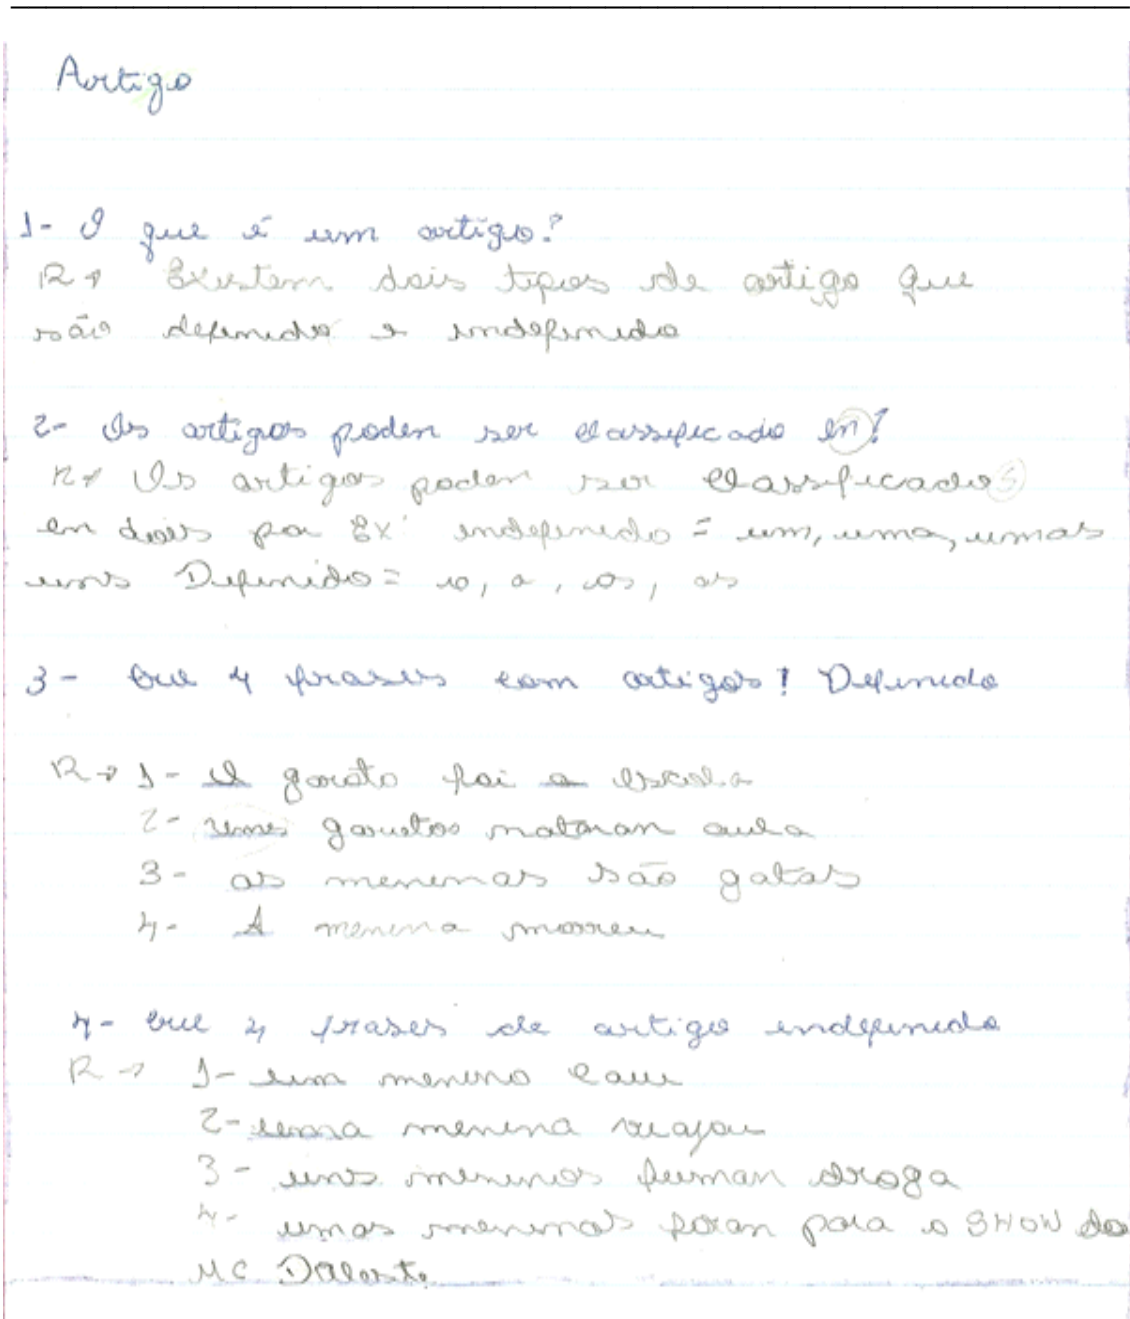 Artigo
1- O que é um artigo?
R→ Existem dois tipos de artigo que
são definido e indefinido
2- Os artigos poden ser classificado en?
R→ Os artigos poden ser classificados
en dois por Ex: indefinido = um, uma, umas
uns Definido = o, a, os, as
3- Crie 4 frases com artigos! Definido
R→ 1- O garoto foi a escola
2- umes garotos mataran aula
3- as meninas são gatas
4- A menina morreu
4- Crie 4 frases de artigo indefinido
R→ 1- um menino caiu
2- uma menina viajou
3- uns meninos fuman droga
4- umas meninas foran para o SHOW do
MC Daleste